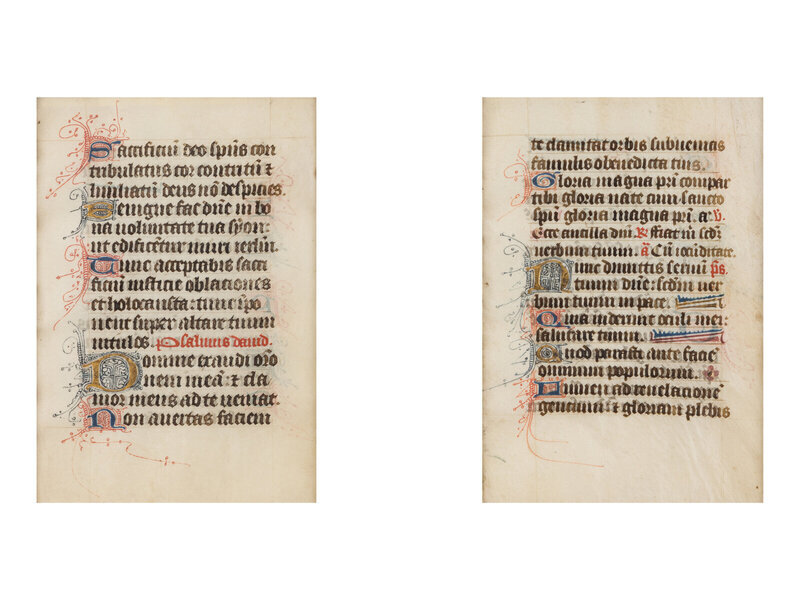 Sacrificiū deo spūs con
tribulatus cor contritū ⁊
humiliatū deus nō despicies.
Benigne fac dn̄e in bo
na voluntate tua syon:
ut edificētur muri ierlm̄.
Tunc acceptabis sacri
ficiū iusticie oblaciones
et holocausta: tunc īpo
nent super altare tuum
vitulos. Psalmus dauid.
Domine exaudi orō
nem meā: ⁊ cla
mor meus ad te veniat.
Non auertas faciem
te clamitat orbis subuenias
famulis o benedicta tuis.
Gloria magna pr̄i compar
tibi gloria nate cum sancto
spū gloria magna pr̄i. a. V.
Ecce ancilla dn̄i. R. ffiat m̄ scdꝫ
verbum tuum. ā Cū iocūditate.
Nunc dimittis seruū ps̄.
tuum dn̄e: scdm̄ ver
bum tuum in pace.
Quia viderunt oculi mei:
salutare tuum.
Quod parasti ante faciē
omnium populorum.
Lumen ad reuelacionē
gencium: ⁊ gloriam plebis